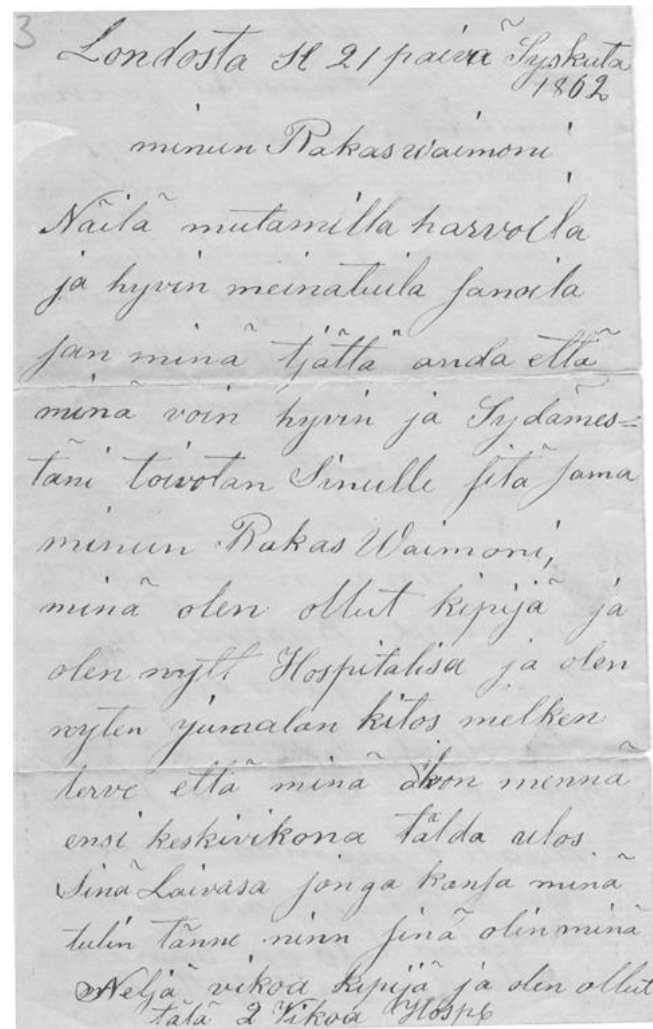 3
Londosta H 21 päivä Syskuta
1862
minun Rakas waimoni
Näilä mutamilla harvoila
ja hyvin meinatuila sanoila
san minä tjättä anda että
minä voin hyvin ja Sydämes=
täni toivotan Sinulle sitä sama
minun Rakas Waimoni,
minä olen ollut kipijä ja
olen nytt Hospitalisa ja olen
nyten jumalan kitos melken
terve että minä menna
ensi keskivikona tälda ulos
Sinä Laivasa jonga kansa minä
tulin tänne ninn sinä olin minä
Neljä vikoa kipijä ja olen ollut
tälä 2 Vikoa Hospb